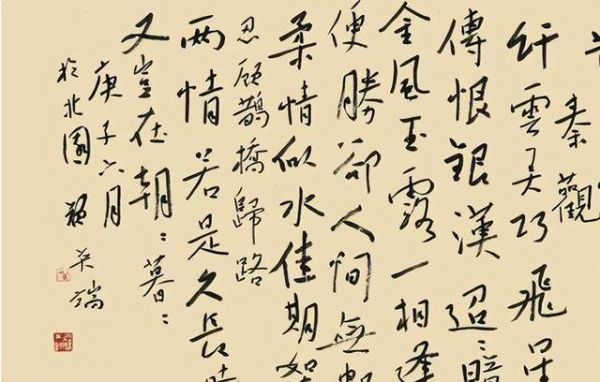 秦觀
纤雲弄巧飛星
傳恨銀漢迢〻暗
金風玉露一相逢
便勝卻人間無數
柔情似水佳期如
忍顧鵲橋歸路
兩情若是久長時
又豈在朝〻暮〻
庚子六月
於北園
英端